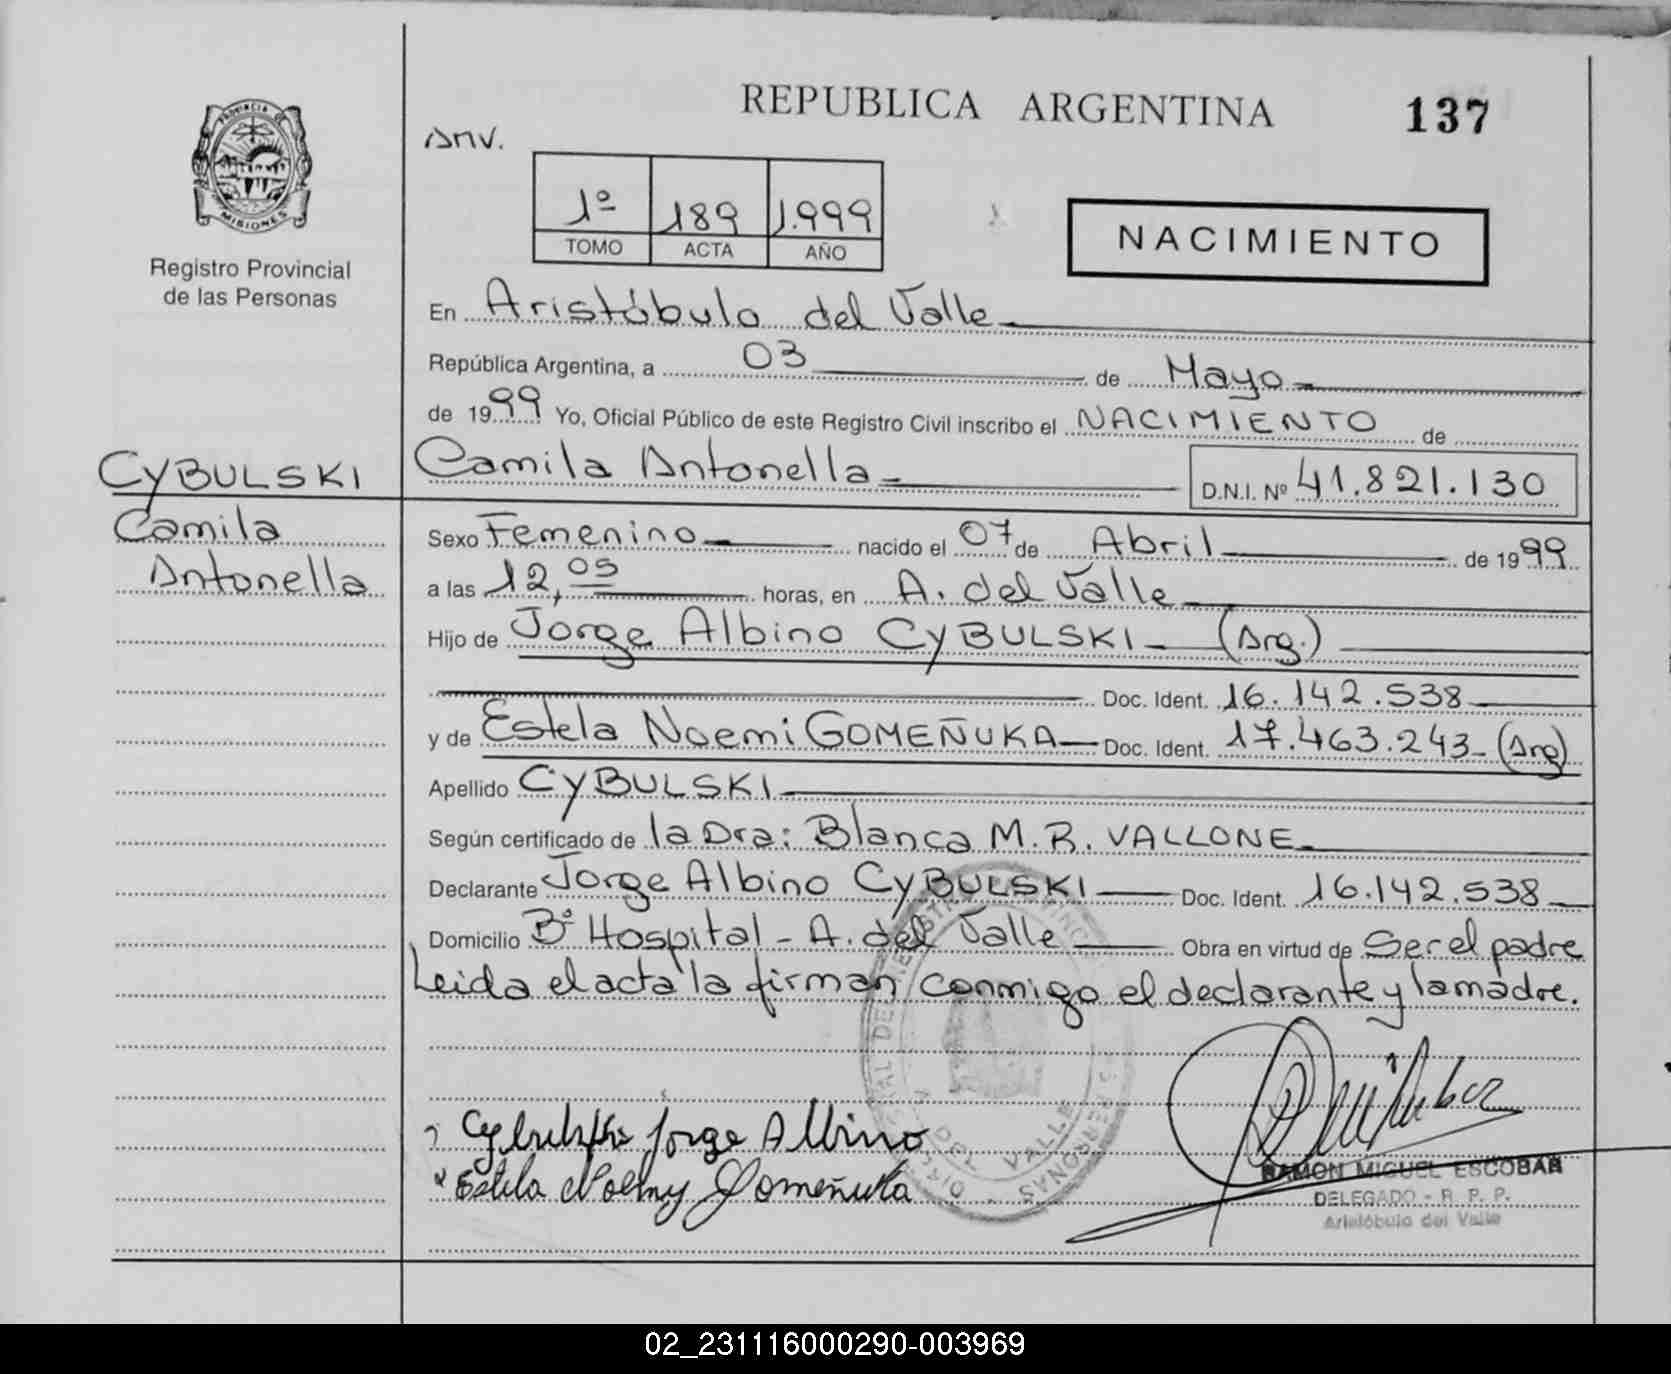 REPUBLICA ARGENTINA
137
Anv.
1º 189 1.999
TOMO ACTA AÑO
NACIMIENTO
PROVINCIA DE MISIONES
Registro Provincial
de las Personas
En Aristóbulo del Valle
República Argentina, a 03 de Mayo
de 1999 Yo, Oficial Público de este Registro Civil inscribo el NACIMIENTO de
CYBULSKI
Camila
Antonella
Camila Antonella D.N.I. Nº 41.821.130
Sexo Femenino nacido el 07 de Abril de 1999
a las 12,05 horas, en A. del Valle
Hijo de Jorge Albino CYBULSKI (Arg.)
Doc. Ident. 16.142.538
y de Estela Noemi GOMEÑUKA Doc. Ident. 17.463.243 (Arg)
Apellido CYBULSKI
Según certificado de la Dra: Blanca M. R. VALLONE
Declarante Jorge Albino CYBULSKI Doc. Ident. 16.142.538
Domicilio Bº Hospital - A. del Valle Obra en virtud de Ser el padre
Leida el acta la firman conmigo el declarante y la madre.
Jorge Albino
Estela Noemy Gomeñuka
RAMON MIGUEL ESCOBAR
DELEGADO - R. P. P.
Aristóbulo del Valle
02_231116000290-003969